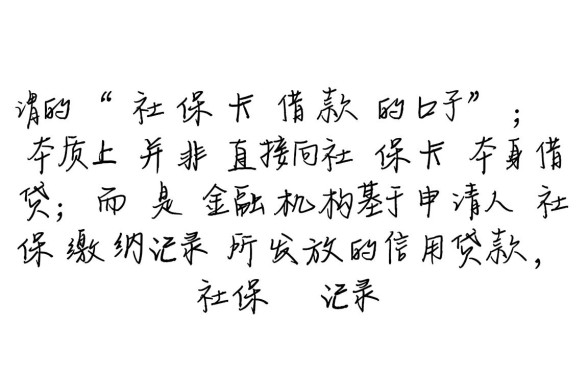 谓的“社保卡借款的口子”；
本质上并非直接向社保卡本身借
贷；而是金融机构基于申请人社
保缴纳记录所发放的信用贷款，
社保 记录